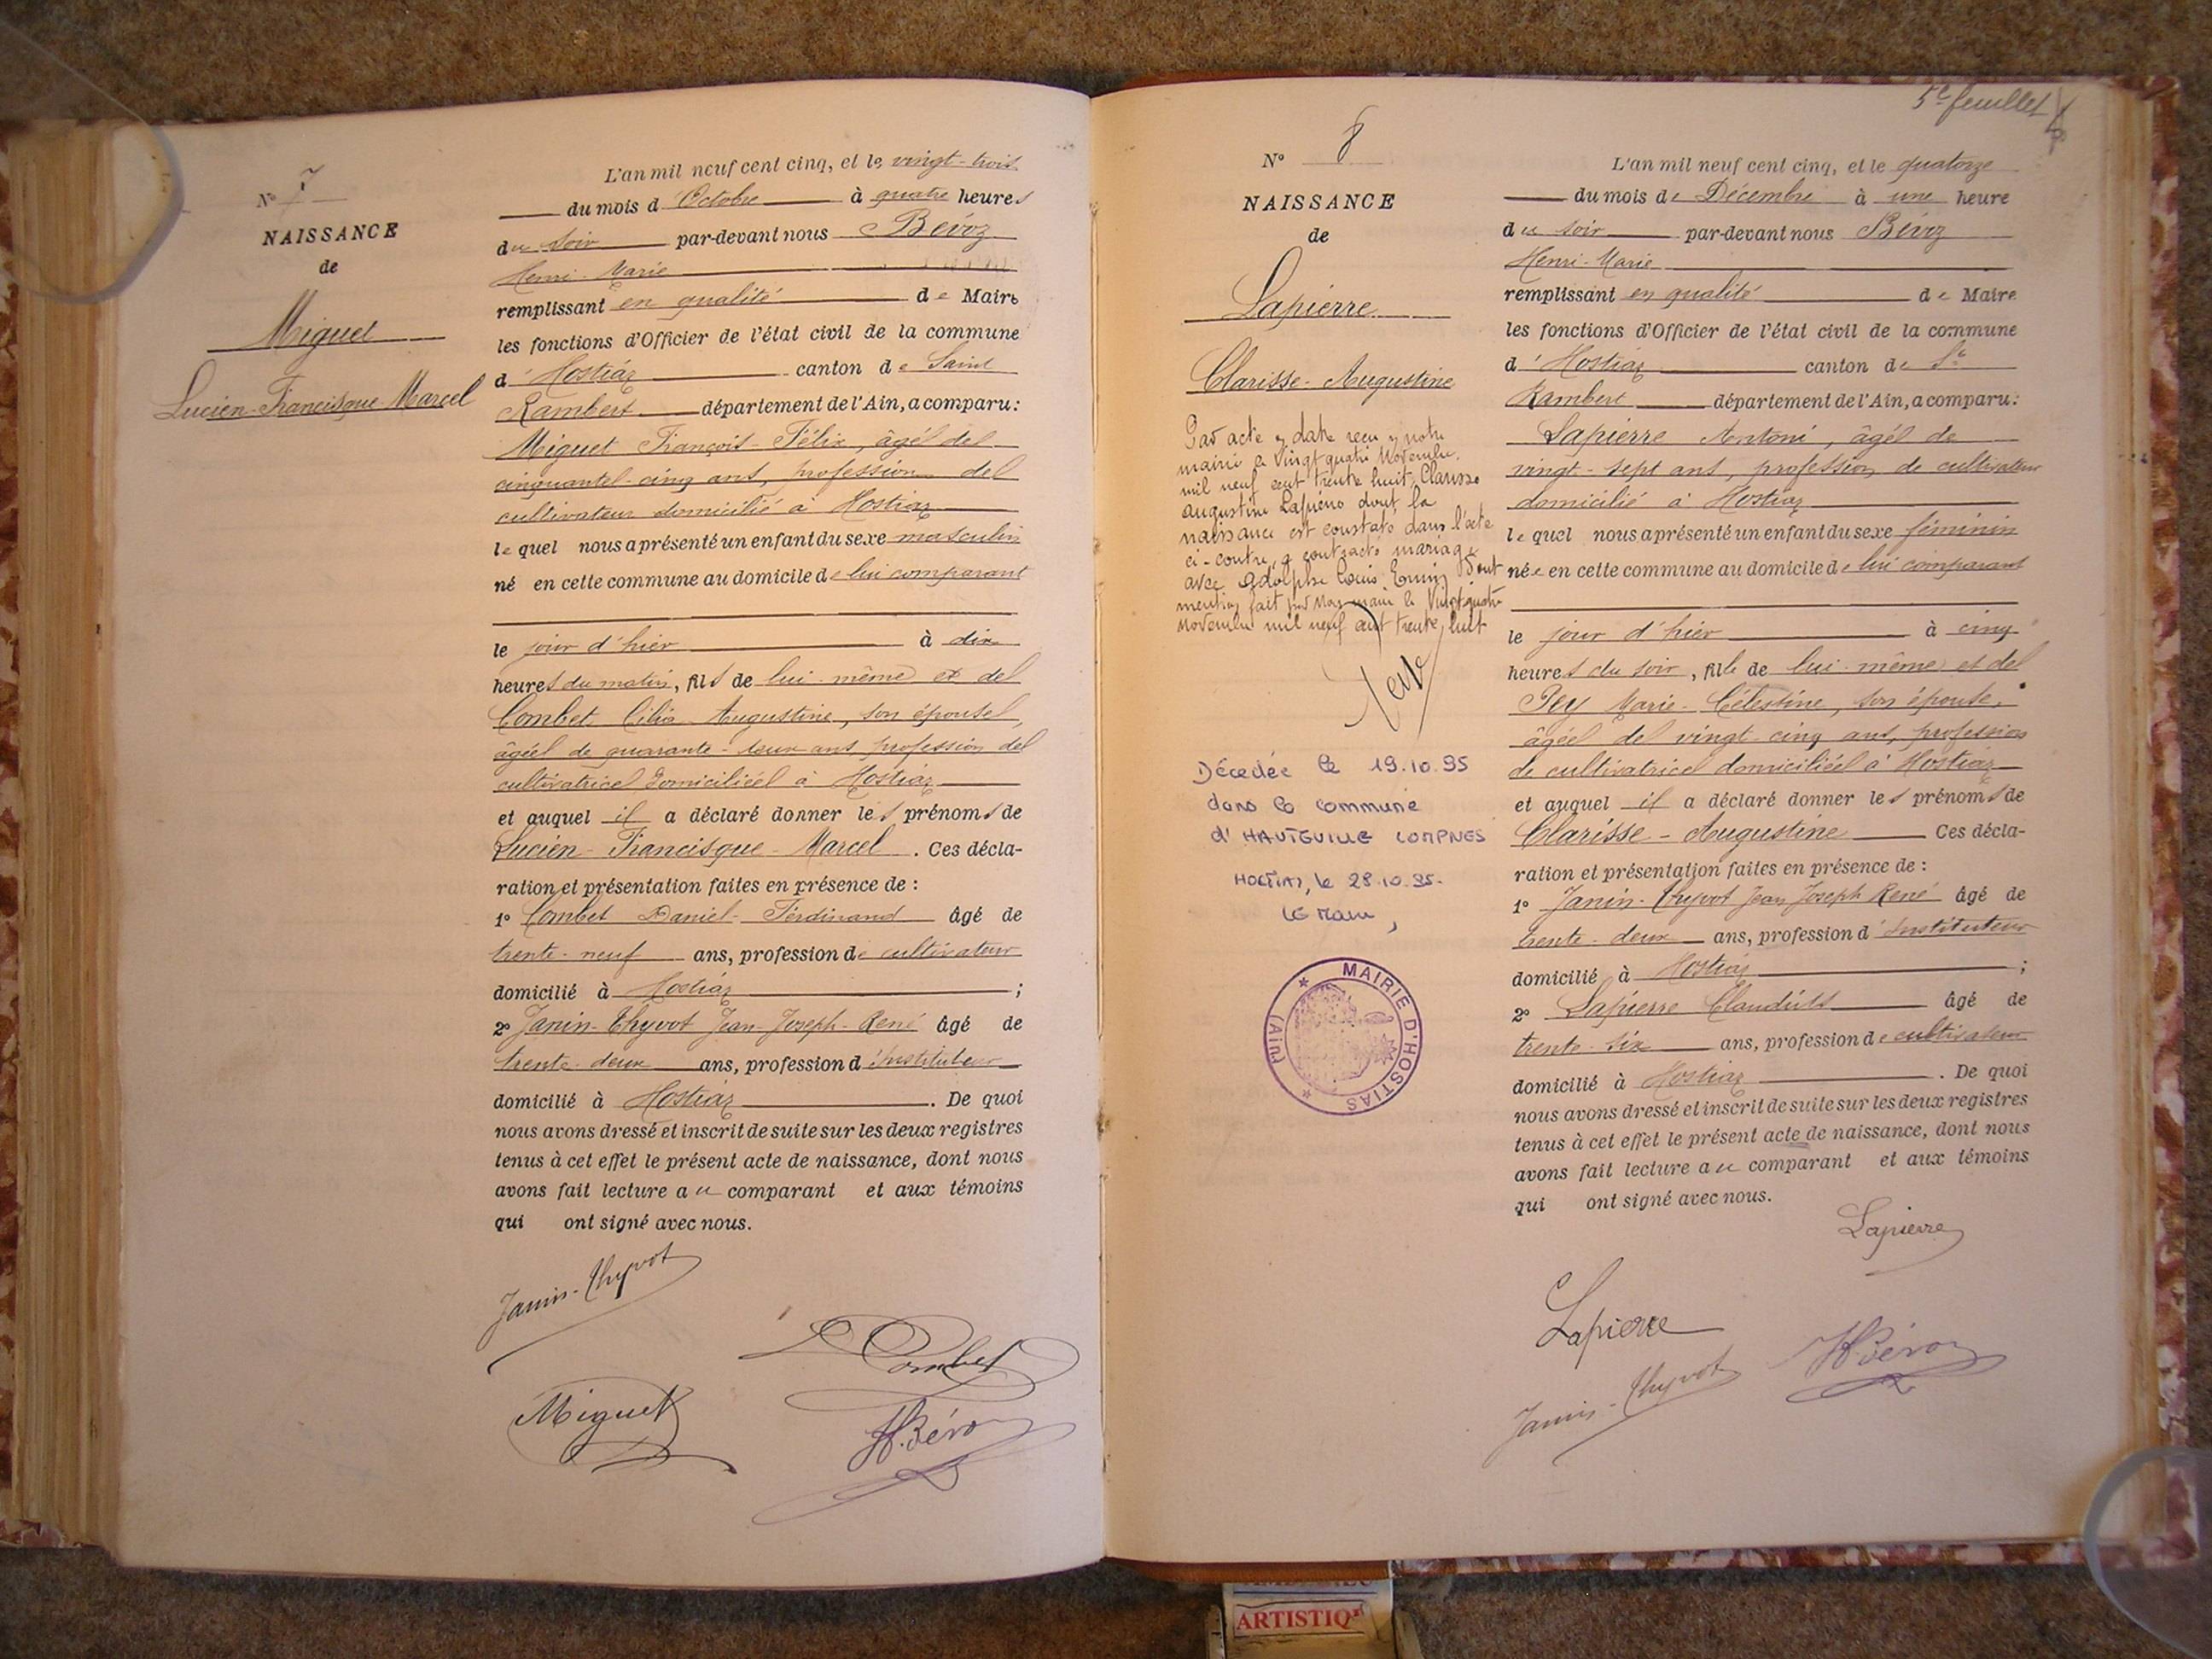 N° 7
NAISSANCE
de
Miguet
Lucien-Francisque-Marcel
L'an mil neuf cent cinq, et le vingt-trois
du mois d'Octobre à quatre heures
du soir par-devant nous Béroz
Henri-Marie
remplissant en qualité de Maire
les fonctions d'Officier de l'état civil de la commune
d'Hostiaz canton de Saint
Rambert département de l'Ain, a comparu:
Miguet François-Félix, âgé de
cinquante-cinq ans, profession de
cultivateur domicilié à Hostiaz
lequel nous a présenté un enfant du sexe masculin
né en cette commune au domicile de lui comparant
le jour d'hier à dix
heures du matin, fils de lui-même et de
Combet Augustine, son épouse
âgée de quarante-deux ans, profession de
cultivatrice domiciliée à Hostiaz
et auquel il a déclaré donner les prénoms de
Lucien-Francisque-Marcel. Ces décla-
ration et présentation faites en présence de :
1° Combet Daniel-Ferdinand âgé de
trente-neuf ans, profession de cultivateur
domicilié à Hostiaz ;
2° Janin-Thyvot Jean-Joseph-René âgé de
trente-deux ans, profession d'Instituteur
domicilié à Hostiaz. De quoi
nous avons dressé et inscrit de suite sur les deux registres
tenus à cet effet le présent acte de naissance, dont nous
avons fait lecture au comparant et aux témoins
qui ont signé avec nous.
Janin-Thyvot
D Combet
Miguet
H. Béroz
5e feuillet
N° 8
NAISSANCE
de
Lapierre
Clarisse-Augustine
Par acte en date reçu en notre
mairie le vingt quatre Novembre
mil neuf cent trente huit, Clarisse
Augustine Lapierre dont la
naissance est constaté dans l'acte
ci-contre, a contracté mariage
avec Adolphe Louis Dont
mention fait par Nous maire le Vingt quatre
Novembre mil neuf cent trente huit
Décédée le 19.10.95
dans la commune
d'HAUTEVILLE LOMPNES
HOSTIAZ, le 28.10.95.
LE Maire,
MAIRIE D'HOSTIAS
(Ain)
L'an mil neuf cent cinq, et le quatorze
du mois de Décembre à une heure
du soir par-devant nous Béroz
Henri-Marie
remplissant en qualité de Maire
les fonctions d'Officier de l'état civil de la commune
d'Hostiaz canton de St
Rambert département de l'Ain, a comparu:
Lapierre Antoni, âgé de
vingt-sept ans, profession de cultivateur
domicilié à Hostiaz
lequel nous a présenté un enfant du sexe féminin
née en cette commune au domicile de lui comparant
le jour d'hier à cinq
heures du soir, fille de lui-même et de
Pey Marie-Célestine, son épouse,
âgée de vingt-cinq ans, profession
de cultivatrice domiciliée à Hostiaz
et auquel il a déclaré donner les prénoms de
Clarisse-Augustine Ces décla-
ration et présentation faites en présence de :
1° Janin-Thyvot Jean Joseph René âgé de
trente-deux ans, profession d'Instituteur
domicilié à Hostiaz ;
2° Lapierre Claudius âgé de
trente-six ans, profession de cultivateur
domicilié à Hostiaz. De quoi
nous avons dressé et inscrit de suite sur les deux registres
tenus à cet effet le présent acte de naissance, dont nous
avons fait lecture au comparant et aux témoins
qui ont signé avec nous.
Lapierre
Lapierre
H. Béroz
Janin-Thyvot
ARTISTIQ